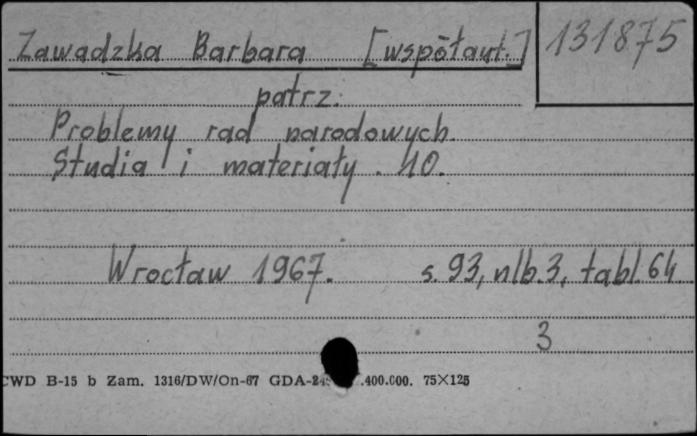 Zawadzka Barbara [współaut.] 131875
patrz:
Problemy rad narodowych.
Studia i materiały. 10.
Wrocław 1967. s. 93, nlb. 3, tabl. 64.
3
CWD B-15 b Zam. 1316/DW/On-67 GDA-2 .400.000. 75×125